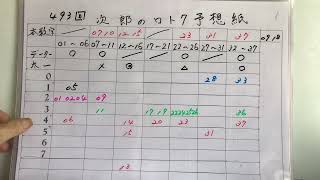 493回 次郎のロト7予想紙
本数字 07,10 12-15 23 31 37 09,18
01~06 07~11 12~16 17~21 22~26 27~31 32~37
データー ○ ○ ○ ○ ○ ○ ○
× ◎ △ ○
0 28 33
1 05
2 01 02 04 09
3 11 17 19 22 24 25 26 36
4 06 14 20 23 37
5 15 31
6
7
13